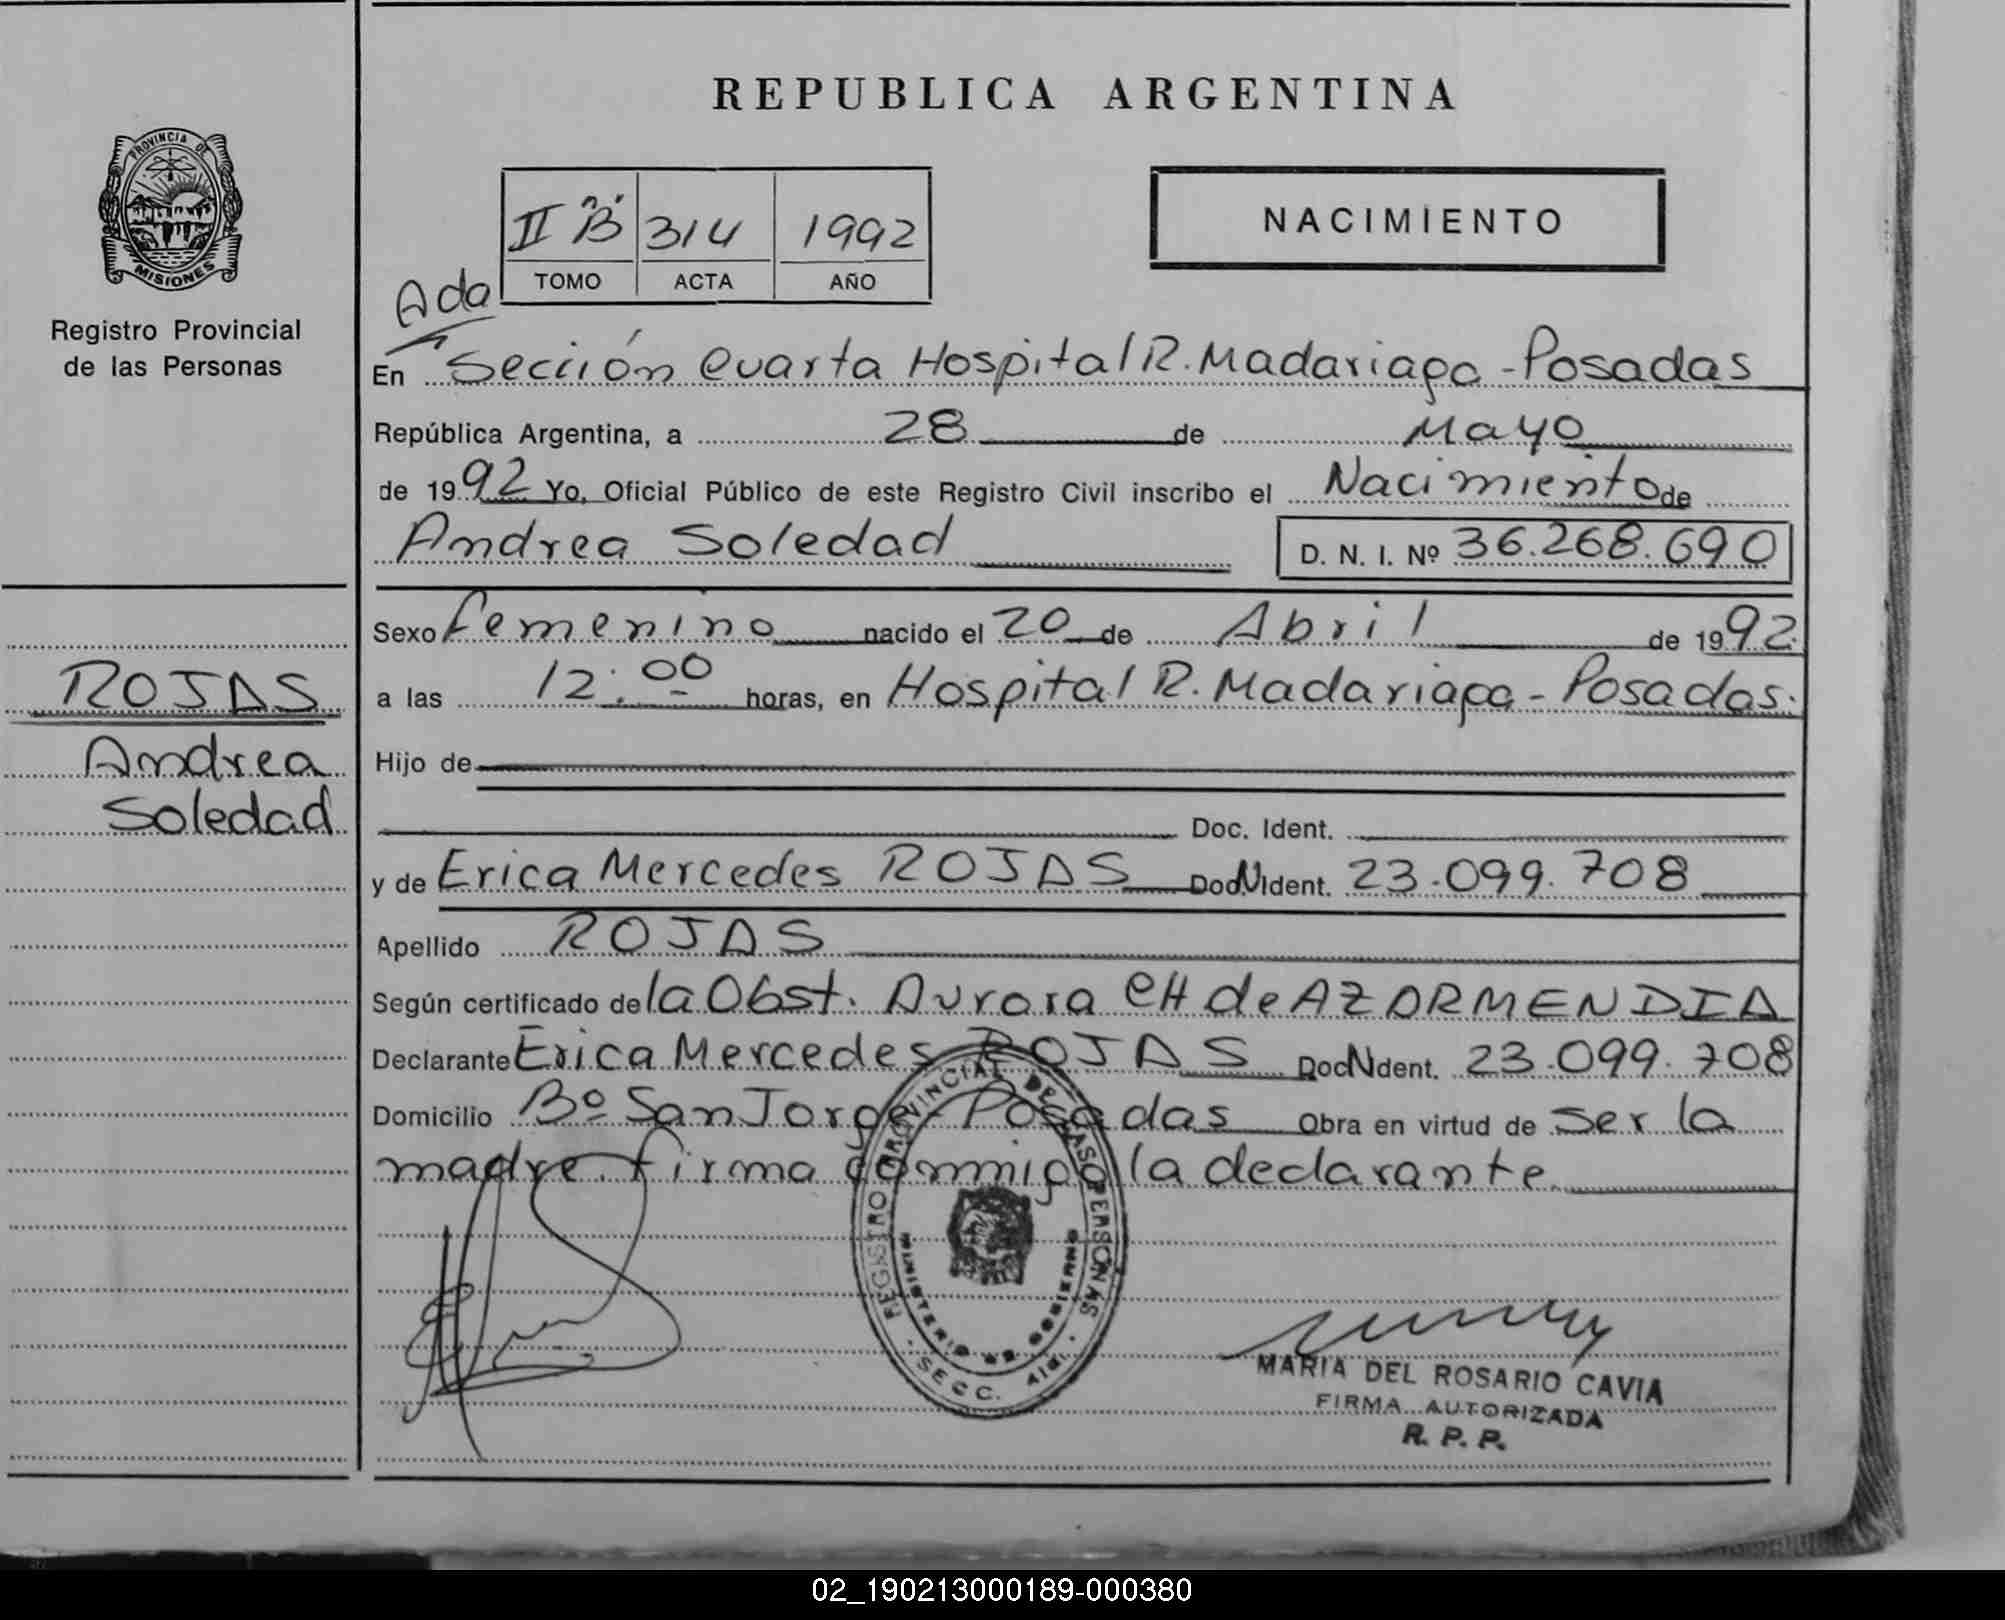 REPUBLICA ARGENTINA
PROVINCIA DE
MISIONES
Registro Provincial
de las Personas
II "B" 314 1992
TOMO ACTA AÑO
NACIMIENTO
Ada
En Sección Cuarta Hospital R. Madariaga - Posadas
República Argentina, a 28 de Mayo
de 1992 Yo, Oficial Público de este Registro Civil inscribo el Nacimiento de
Andrea Soledad D. N. I. Nº 36.268.690
Sexo femenino nacido el 20 de Abril de 1992
a las 12:00 horas, en Hospital R. Madariaga - Posadas.
Hijo de
Doc. Ident.
y de Erica Mercedes ROJAS Doc. Ident. 23.099.708
Apellido ROJAS
Según certificado de la Obst. Aurora CH de AZARMENDIA
Declarante Erica Mercedes ROJAS Doc. Ident. 23.099.708
Domicilio Bº San Jorge - Posadas Obra en virtud de ser la
madre. firma conmigo la declarante.
ROJAS
Andrea
Soledad
REGISTRO PROVINCIAL DE LAS PERSONAS
MINISTERIO DE GOBIERNO
SECC. 4ta.
MARIA DEL ROSARIO CAVIA
FIRMA AUTORIZADA
R. P. P.
02_190213000189-000380